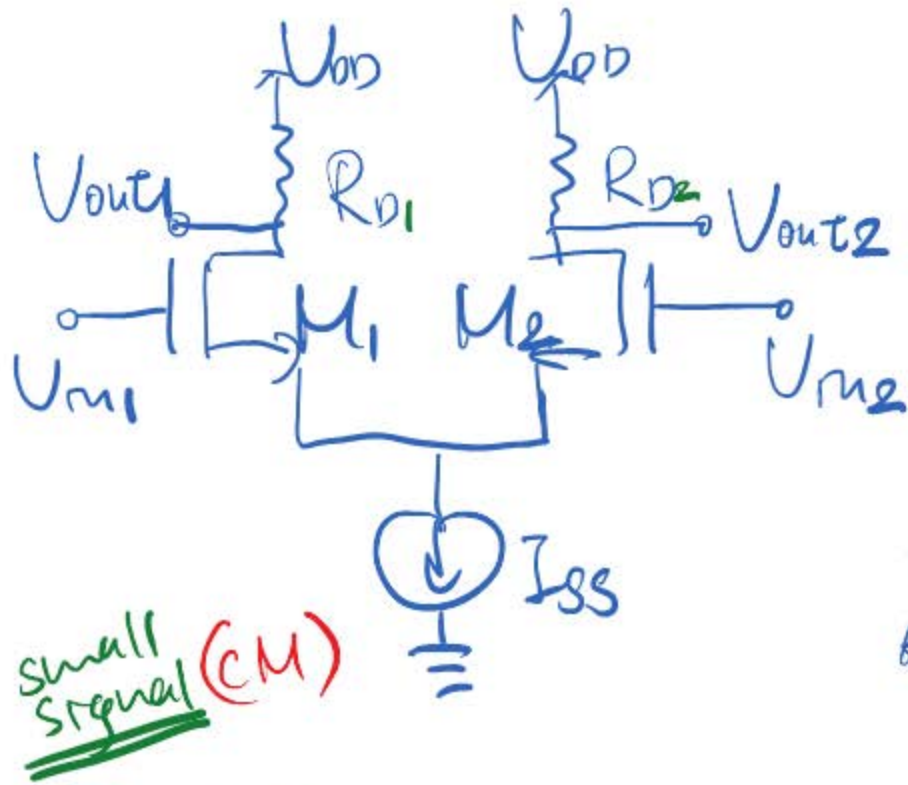 VDD
VDD
Vout1
RD1
RD2
Vout2
M1
M2
Vin1
Vin2
ISS
small
signal (CM)